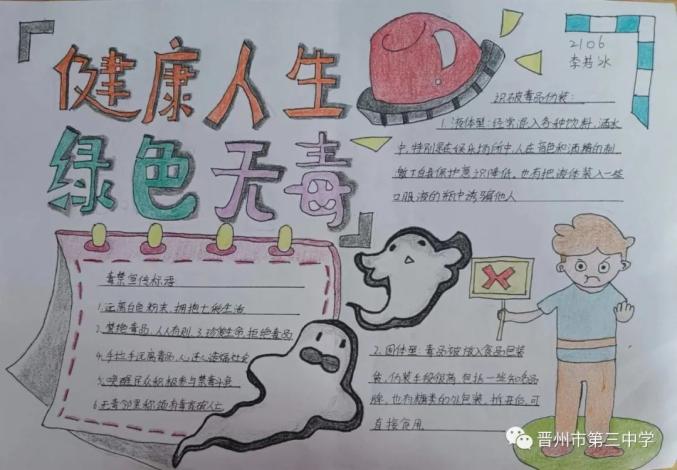 健康人生
绿色无毒
2106
李若冰
识破毒品伪装:
1.液体里:经常混入各种饮料,酒水
中,特别是在娱乐场所中,人在音色和酒精的刺
激下自身保护意识降低,也有把液体装入一些
口服液的瓶中诱骗他人
毒禁宣传标语
1.远离白色粉末,拥抱七彩生活
2.禁绝毒品,人人有别 3.珍爱生命,拒绝毒品
4.手拉手远离毒品,心连心造福社会
5.唤醒民众积极参与禁毒斗争
2.固体里:毒品被放入食品包装
袋,伪装手段很高,包括一些知名品
牌,也有糖类的外包装,拆开后,可
直接食用
晋州市第三中学